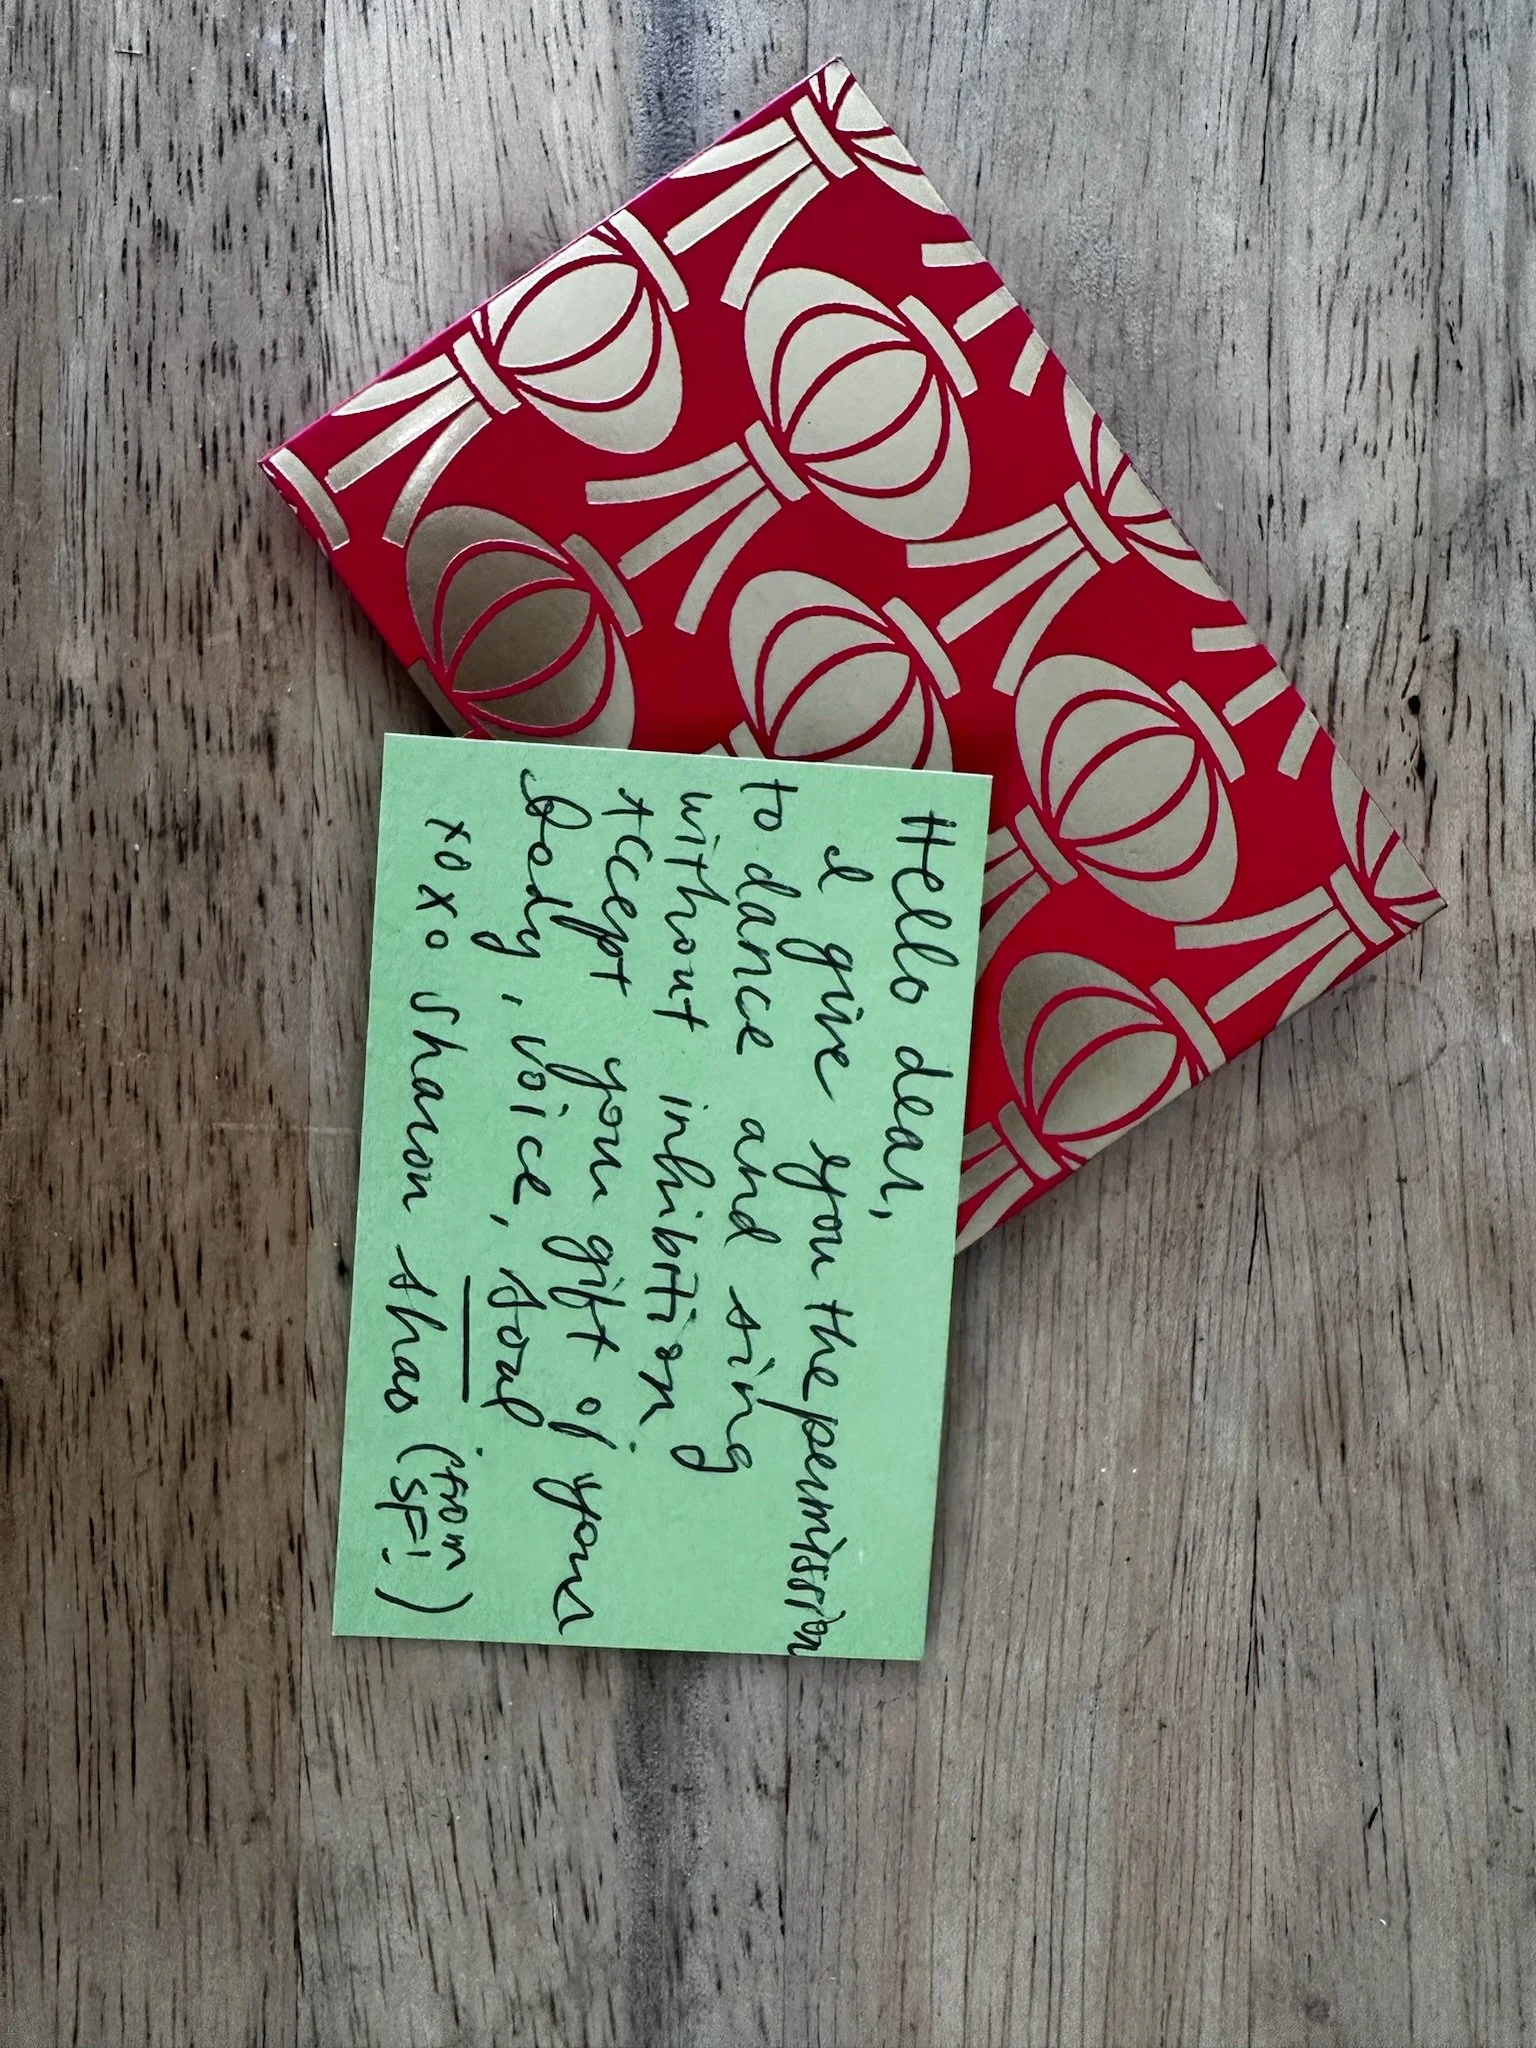 Hello dear,
I give you the permission
to dance and sing
without inhibition
Accept your gift of your
body, voice, soul
xoxo Sharon Shao (from
SF!)